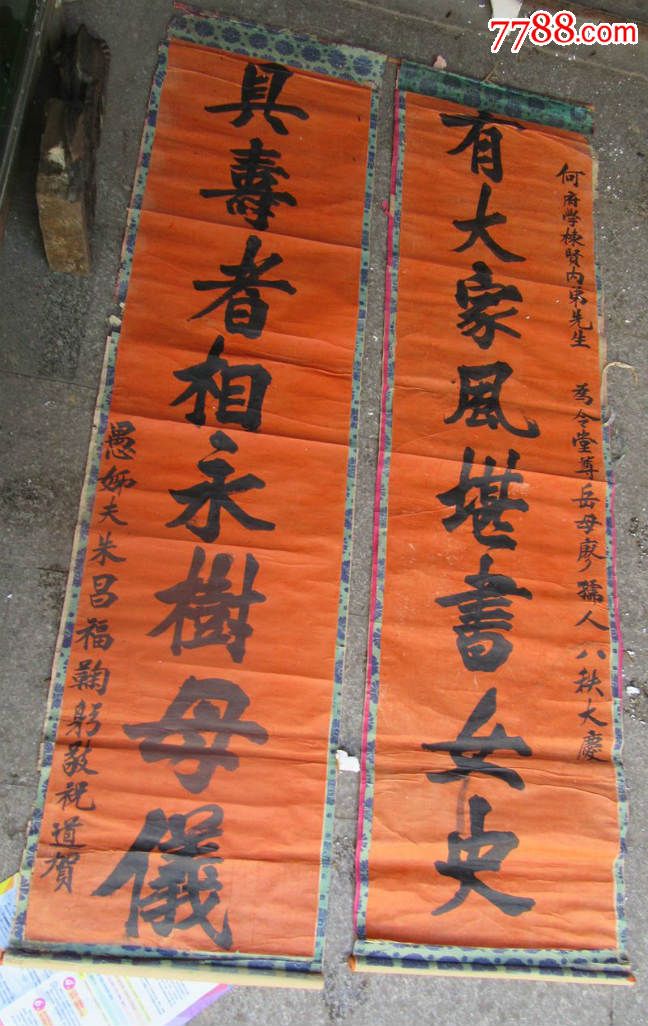 7788.com
何府學棟賢內弟先生 為令堂尊岳母廖孺人八秩大慶
有大家風堪書女史
具壽者相永樹母儀
愚姊夫朱昌福鞠躬敬祝道賀